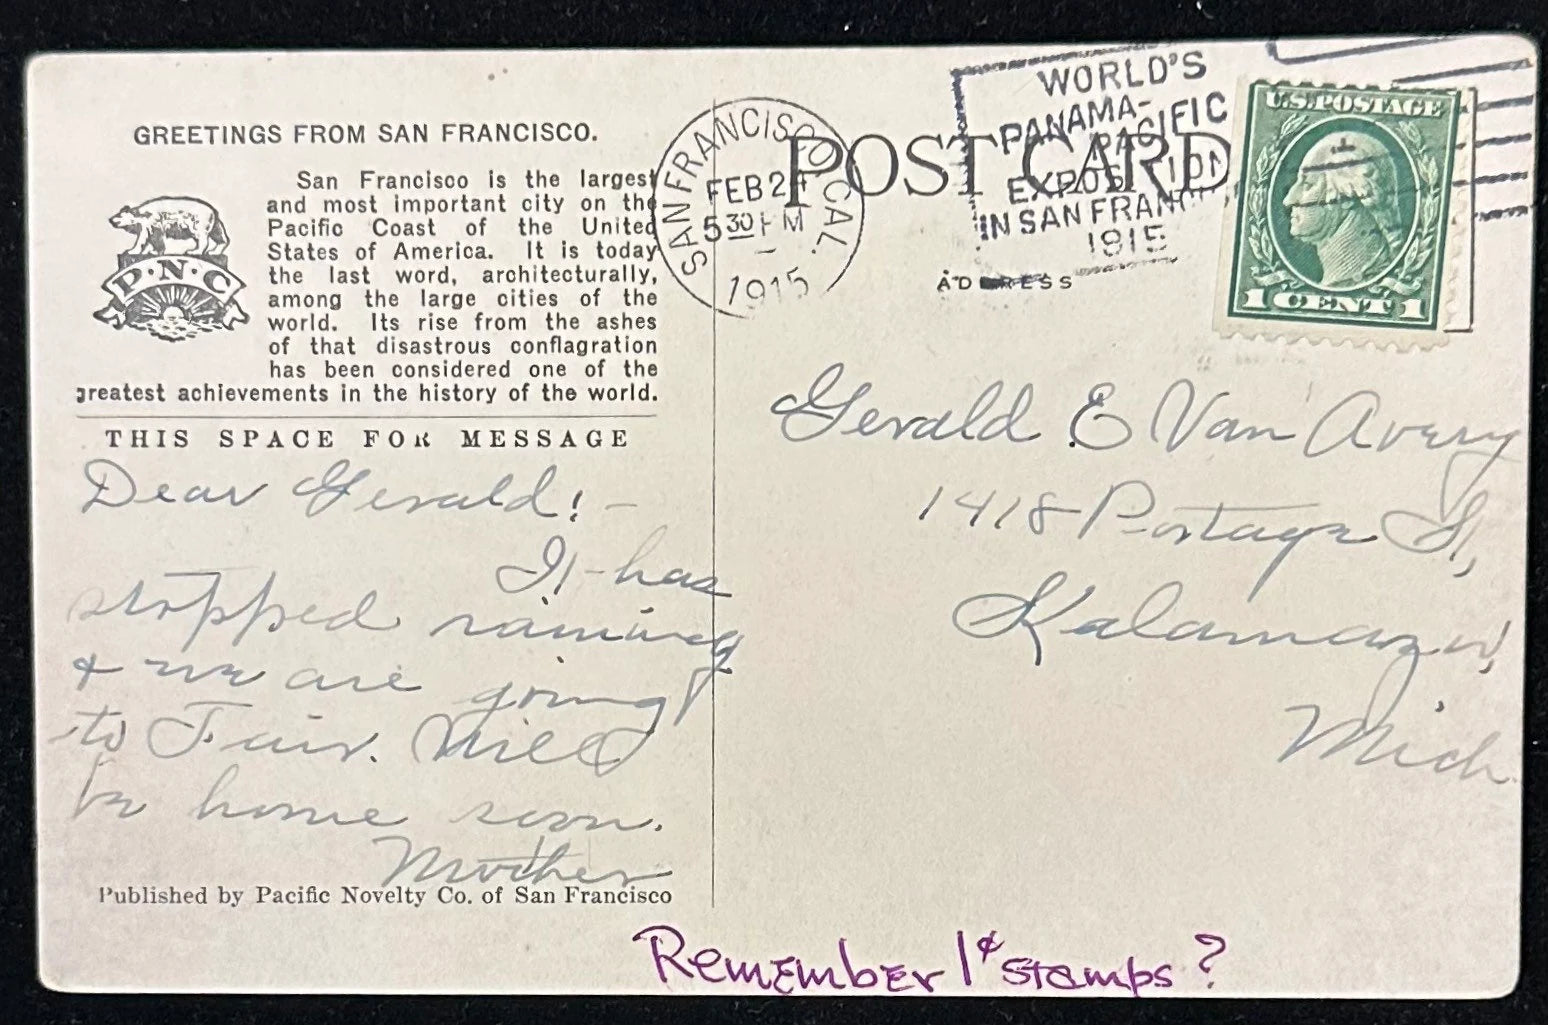 GREETINGS FROM SAN FRANCISCO.
P·N·C
San Francisco is the largest
and most important city on the
Pacific Coast of the United
States of America. It is today
the last word, architecturally,
among the large cities of the
world. Its rise from the ashes
of that disastrous conflagration
has been considered one of the
greatest achievements in the history of the world.
THIS SPACE FOR MESSAGE
Dear Gerald! –
It has
stopped raining
& we are going
to Fair. Will
be home soon.
Mother
Published by Pacific Novelty Co. of San Francisco
SAN FRANCISCO, CAL.
FEB 24
5 30 PM
1915
WORLD'S
PANAMA-
PACIFIC
EXPOSITION
IN SAN FRAN
1915
POST CARD
ADDRESS
U.S. POSTAGE
1 CENT 1
Gerald E Van Avery
1418 Portage St,
Kalamazoo,
Mich
Remember 1¢ stamps?